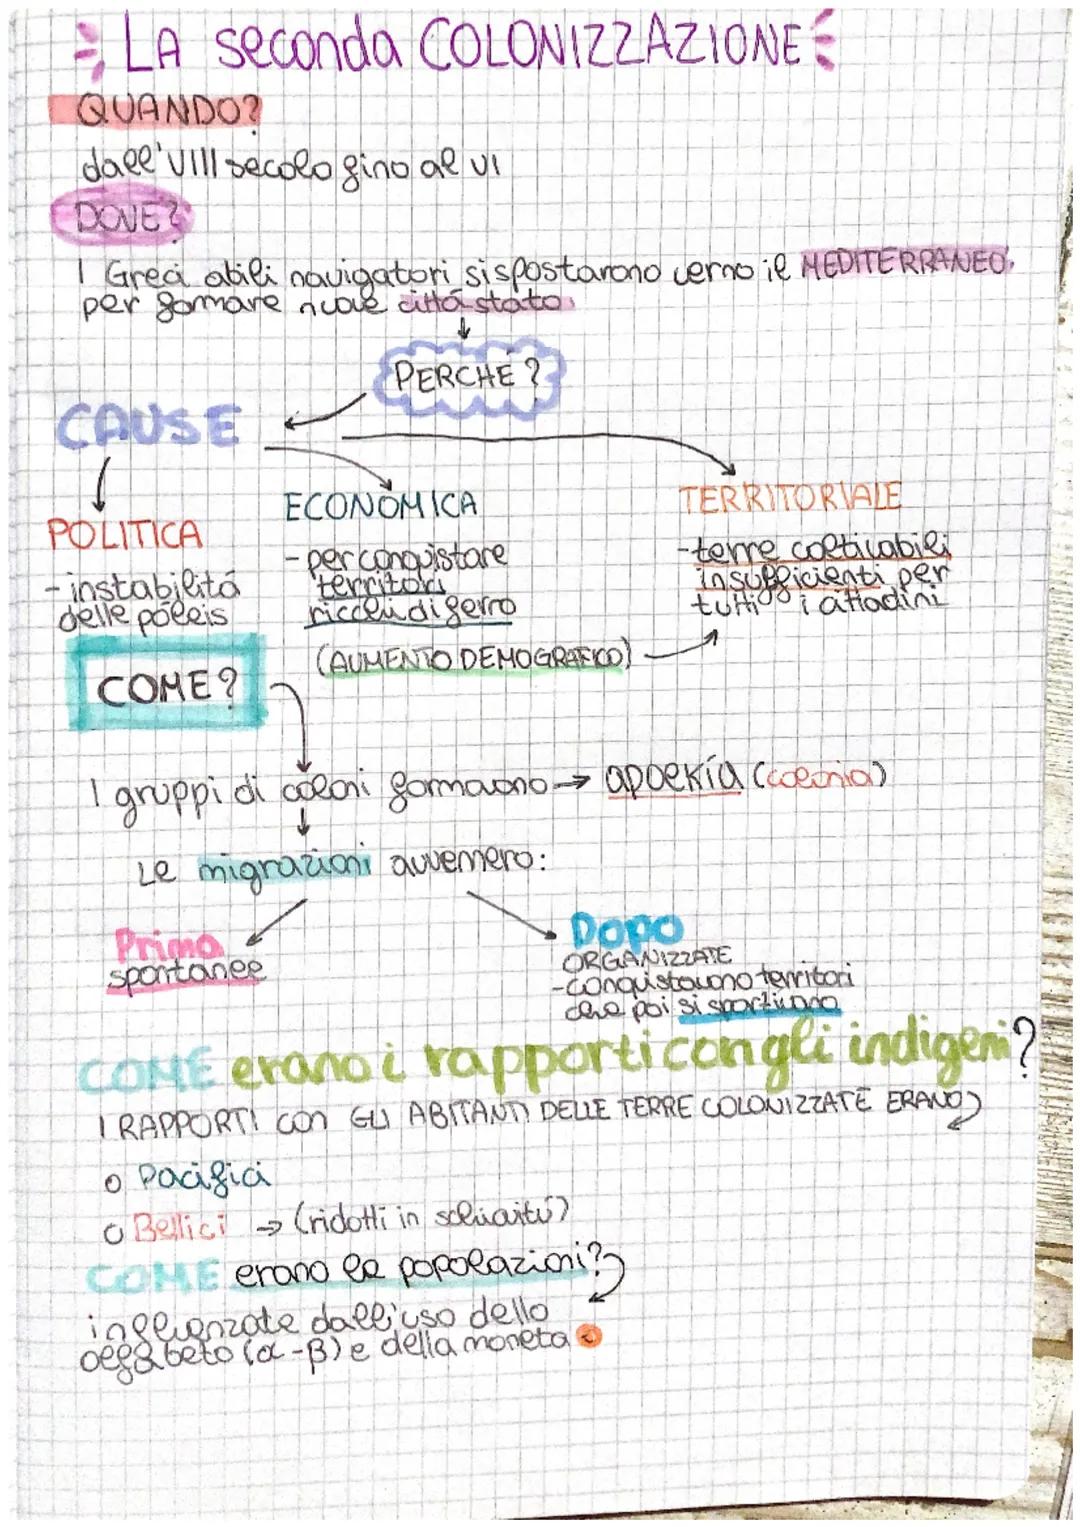 LA seconda COLONIZZAZIONE
QUANDO?
dall'VIII secolo fino al VI
DOVE?
I Greci abili navigatori si spostarono verno il MEDITERRANEO.
per formare nuove città stato
PERCHÉ?
CAUSE
POLITICA
- instabilità
delle póleis
ECONOMICA
- per conquistare
territori
ricchi di ferro
TERRITORIALE
- terre coltivabili
insufficienti per
tutti i cittadini
(AUMENTO DEMOGRAFICO)
COME?
I gruppi di coloni formavono → apoekía (colonia)
Le migrazioni avvennero:
Prima
spontanee
Dopo
ORGANIZZATE
- conquistavono territori
che poi si spartivano
COME erano i rapporti con gli indigeni?
I RAPPORTI con GLI ABITANTI DELLE TERRE COLONIZZATE ERANO
o Pacifici
o Bellici → (ridotti in schiavitú)
COME erano le popolazioni?
influenzate dall'uso dello
alfabeto (α-β) e della moneta